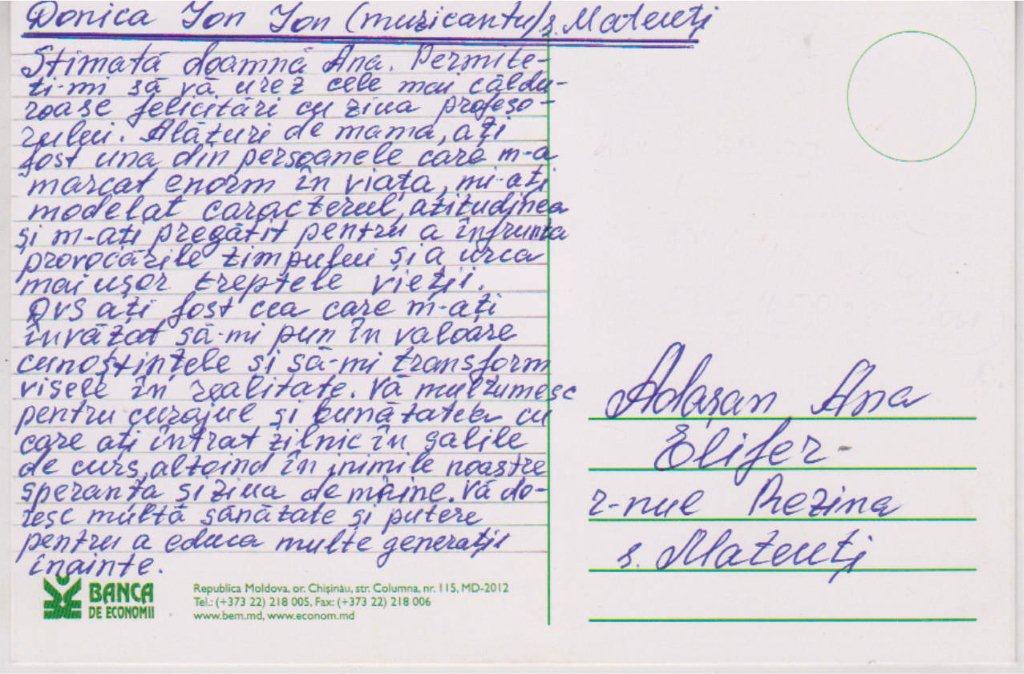 Donica Ion Ion (muzicantu) s. Mateuți
Stimată doamnă Ana. Permite-
ți-mi să vă urez cele mai căldu-
roase felicitări cu ziua profeso-
rului. Alături de mama, ați
fost una din persoanele care m-a
marcat enorm în viața, mi-ați
modelat caracterul, atitudinea
și m-ați pregătit pentru a înfrunta
provocările timpului și a urca
mai ușor treptele vieții.
DVS ați fost cea care m-ați
învățat să-mi pun în valoare
cunoștințele și să-mi transform
visele în realitate. Vă mulțumesc
pentru curajul și bunătatea cu
care ați intrat zilnic în salile
de curs, altoind în inimile noastre
speranța și ziua de mâine. Vă do-
resc multă sănătate și putere
pentru a educa multe generații
înainte.
BANCA
DE ECONOMII
Republica Moldova, or. Chișinău, str. Columna, nr. 115, MD-2012
Tel.: (+373 22) 218 005, Fax: (+373 22) 218 006
www.bem.md, www.econom.md
Adașan Ana
Elifer-
r-nul Rezina
s. Mateuți